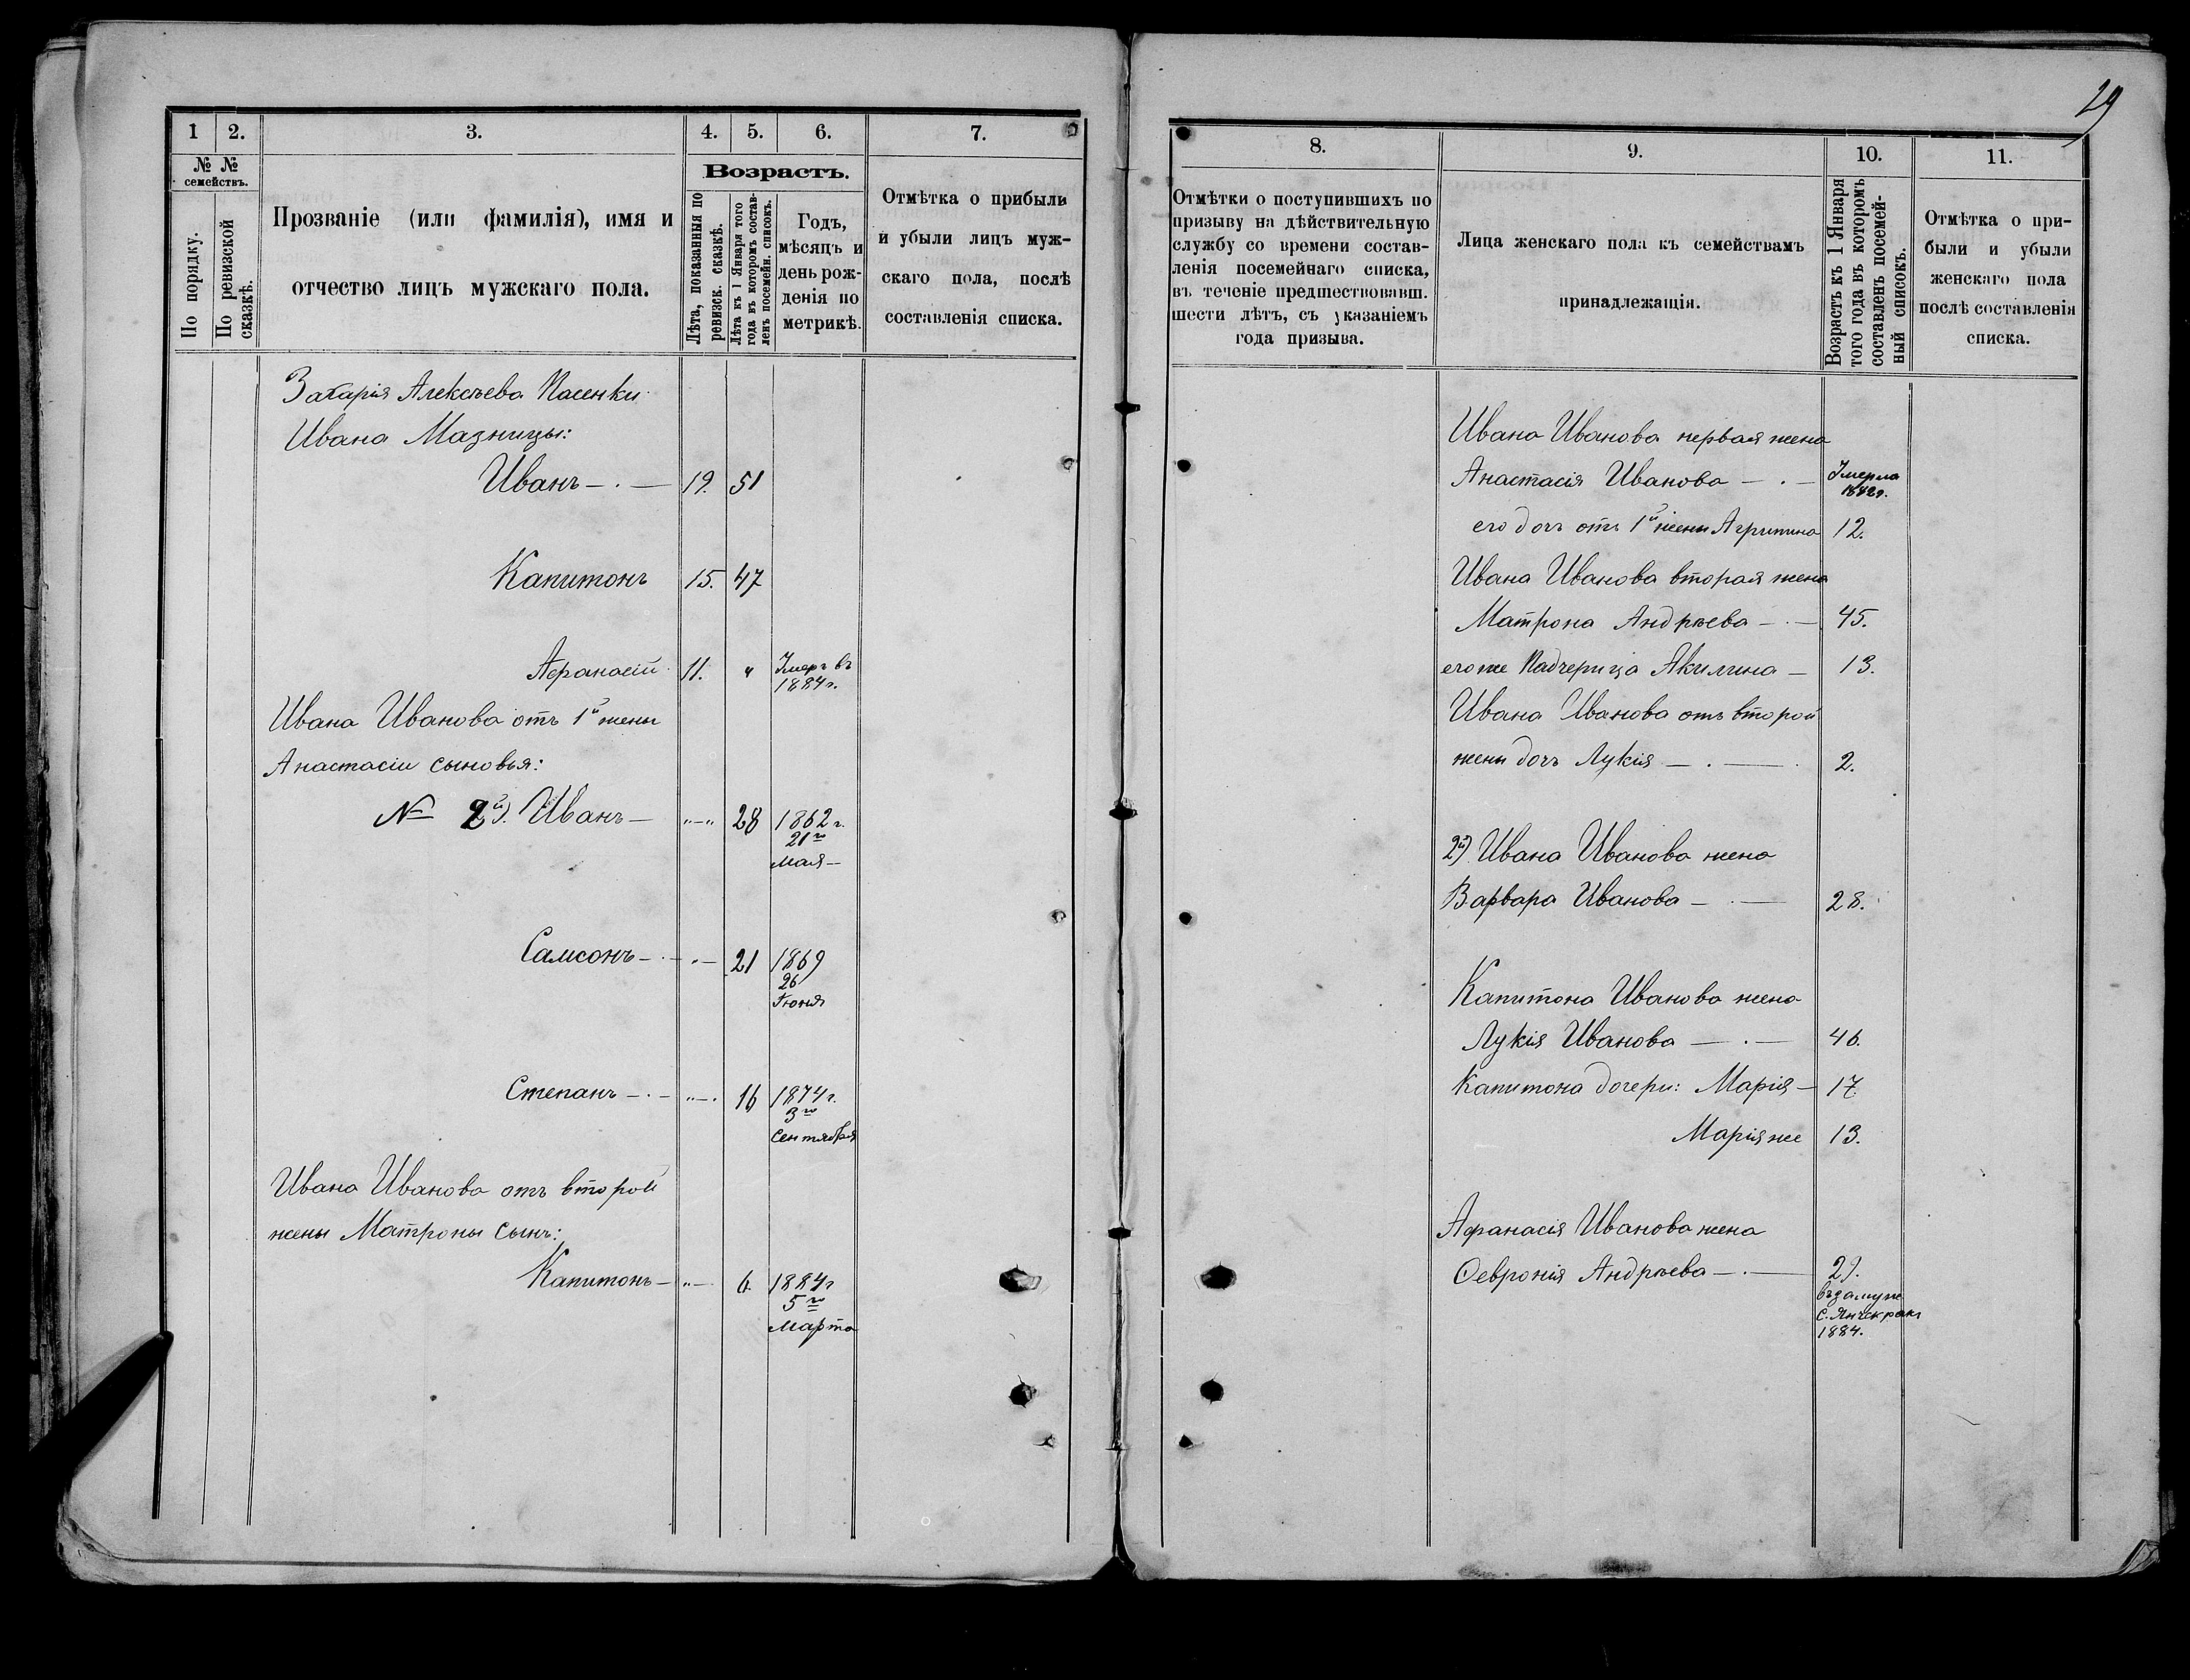 29
1 2. 3. 4. 5. 6. 7.
№ № семействъ.
По порядку.
По ревизской сказкѣ.
Прозваніе (или фамилія), имя и
отчество лицъ мужскаго пола.
Возрастъ.
Лѣта, показанныя по ревизск. сказкѣ.
Лѣта къ 1 Января того года въ которомъ составленъ посемейн. списокъ.
Годъ,
мѣсяцъ и
день рож-
денія по
метрикѣ.
Отмѣтка о прибыли
и убыли лицъ муж-
скаго пола, послѣ
составленія списка.
Захарія Алексѣева Пасенки
Ивана Мазницы:
Иванъ — . — 19. 51
Капитонъ 15. 47
Афанасій 11. " Умеръ въ
1884 г.
Ивана Иванова отъ 1й жены
Анастасіи сыновья:
№ 2й). Иванъ — "—" 28 1862 г.
21го
Мая —
Самсонъ — . — "— 21 1869
26
Іюня
Степанъ — . — "—. 16 1874 г.
3го
Сентября
Ивана Иванова отъ второй
жены Матроны сынъ:
Капитонъ — "— 6. 1884 г
5го
Марта
8. 9. 10. 11.
Отмѣтки о поступившихъ по
призыву на дѣйствительную
службу со времени состав-
ленія посемейнаго списка,
въ теченіе предшествовавш.
шести лѣтъ, съ указаніемъ
года призыва.
Лица женскаго пола къ семействамъ
принадлежащія.
Возрастъ къ 1 Января того года въ которомъ составленъ посемейный списокъ.
Отмѣтка о при-
были и убыли
женскаго пола
послѣ составленія
списка.
Ивана Иванова первая жена
Анастасія Иванова — . — Умерла
его дочь отъ 1й жены Агрипина 12.
Ивана Иванова вторая жена
Матрона Андрѣева — . — 45.
его же Падчерица Акилина — 13.
Ивана Иванова отъ второй
жены дочь Лукія — . — 2.
2й) Ивана Иванова жена
Варвара Иванова — . — 28.
Капитона Иванова жена
Лукія Иванова — . — 46.
Капитона дочери: Марія — 17.
Марія же 13.
Афанасія Иванова жена
Ѳевронія Андрѣева — . — 29.
въ замуже
с. Янчекракъ
1884.